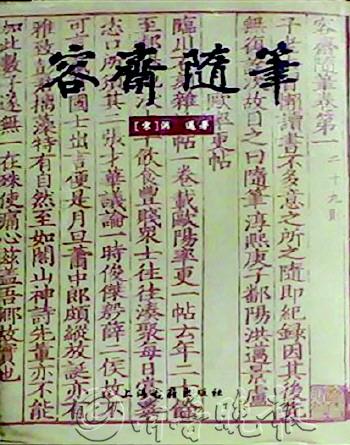 容齋隨筆
[宋]洪 邁著
容齋隨筆卷第一 二十九則
讀書不多意之所之隨即紀錄因其後
無復故目之曰隨筆淳熙庚子鄱陽洪邁景盧
率更帖
臨川雜帖一卷載歐陽率更一帖云年二餘
至鄱平飲食豐賤衆士往往湊聚每日
恣口所其二張才華議論一時俊傑薛二侯故不
可言國士出言便是月旦蕭中郎頗縱放誕亦有
雅致彭摛藻特有自然至如閣山神詩先輩亦不能
加此數子遂無一在殊使痛心茲蓋吾鄉故實也
上海古籍出版社
齊魯晚報